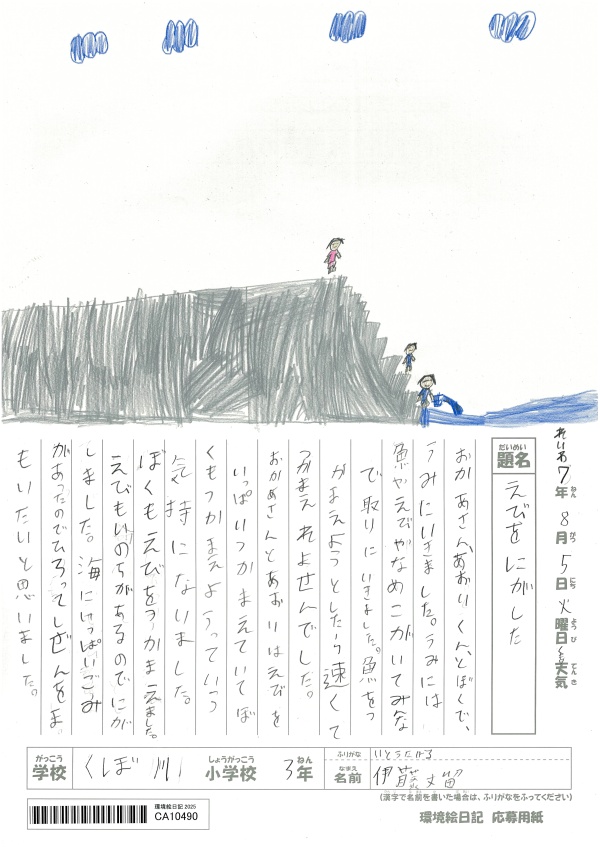 れいわ7年8月5日火曜日 天気
ねん がつ にち ようび てんき
だいめい
題名
えびをにがした
おかあさん、あおいくん、とぼくで、
うみにいきました。うみには
魚やえびやなめこがいてみな
で取りにいきました。魚をつ
かまえようとしたら速くて
つかまえれませんでした。
おかあさんとあおいはえびを
いっぱいつかまえていてぼ
くもつかまえようっていう
気持になりました。
ぼくもえびをつかまえました。
えびもいのちがあるのでにが
しました。海にいっぱいごみ
があったのでひろってしぜんをま
もいたいと思いました。
がっこう
学校
くぼ川
しょうがっこう
小学校
3年
ねん
ふりがな
いとうたける
なまえ
名前
伊藤丈留
(漢字で名前を書いた場合は、ふりがなをふってください)
環境絵日記 2025
CA10490
環境絵日記 応募用紙